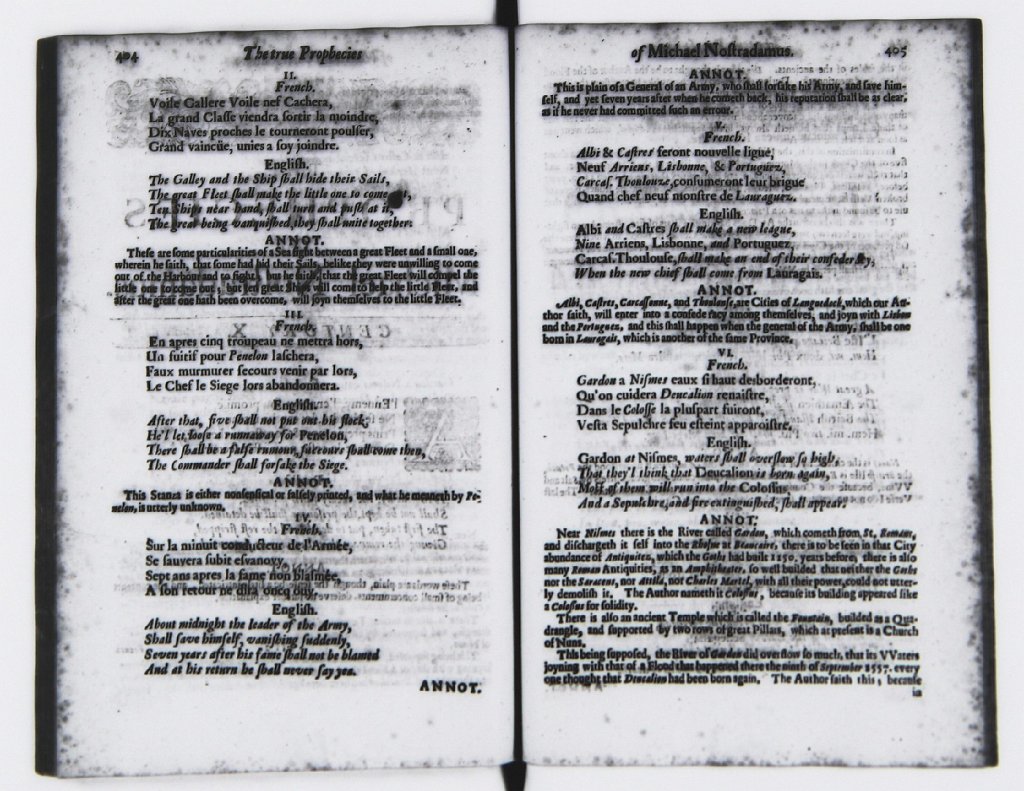 404 The true Prophecies
II.
French.
Voile Gallere Voile nef Cachera,
La grand Classe viendra sortir la moindre,
Dix Naves proches le tourneront poulser,
Grand vaincüe, unies a soy joindre.
English.
The Galley and the Ship shall hide their Sails,
The great Fleet shall make the little one to come out,
Ten Ships near hand, shall turn and push at it,
The great being vanquished, they shall unite together.
ANNOT.
These are some particularities of a Sea fight between a great Fleet and a small one,
wherein he saith, that some had hid their Sails, belike they were unwilling to come
out of the Harbour and to fight, but he saith, that the great Fleet will compel the
little one to come out, but ten great Ships will come to help the little Fleet, and
after the great one hath been overcome, will joyn themselves to the little Fleet.
III.
French.
En apres cinq troupeau ne mettra hors,
Un fuitif pour Penelon laschera,
Faux murmurer secours venir par lors,
Le Chef le Siege lors abandonnera.
English.
After that, five shall not put out his flock,
He'l let loose a runnaway for Penelon,
There shall be a false rumour, succours shall come then,
The Commander shall forsake the Siege.
ANNOT.
This Stanza is either nonsensical or falsely printed, and what he meaneth by Pe-
nelon, is utterly unknown.
IV.
French.
Sur la minuit conducteur de l'Armée,
Se sauvera subit esvanovy,
Sept ans apres la fame non blasmée,
A son retour ne dira oncq ouy.
English.
About midnight the leader of the Army,
Shall save himself, vanishing suddenly,
Seven years after his fame shall not be blamed
And at his return he shall never say yea.
ANNOT.
of Michael Nostradamus. 405
ANNOT.
This is plain of a General of an Army, who shall forsake his Army, and save him-
self, and yet seven years after when he cometh back, his reputation shall be as clear,
as if he never had committed such an errour.
V.
French.
Albi & Castres feront nouvelle ligue,
Neuf Arriens, Lisbonne, & Portuguez,
Carcas. Thoulouze, consumeront leur brigue
Quand chef neuf monstre de Lauraguez.
English.
Albi and Castres shall make a new league,
Nine Arriens, Lisbonne, and Portuguez,
Carcas. Thoulouse, shall make an end of their confederacy,
When the new chief shall come from Lauragais.
ANNOT.
Albi, Castres, Carcassonne, and Thoulouse, are Cities of Languedock, which our Au-
thor saith, will enter into a confederacy among themselves, and joyn with Lisbon
and the Portuguez, and this shall happen when the general of the Army, shall be one
born in Lauragais, which is another of the same Province.
VI.
French.
Gardon a Nismes eaux si haut desborderont,
Qu'on cuidera Deucalion renaistre,
Dans le Colosse la pluspart fuiront,
Vesta Sepulchre feu esteint apparoistre.
English.
Gardon at Nismes, waters shall overflow so high,
That they'l think that Deucalion is born again,
Most of them will run into the Colossus,
And a Sepulchre, and fire extinguished, shall appear.
ANNOT.
Near Nismes there is the River called Gardon, which cometh from St. Romans,
and dischargeth it self into the Rhosne at Beaucaire, there is to be seen in that City
abundance of Antiquities, which the Goths had built 1150. years before, there is also
many Roman Antiquities, as an Amphitheater, so well builded that neither the Goths
nor the Saracens, nor Attila, nor Charles Martel, with all their power, could not utter-
ly demolish it. The Author nameth it Colossus, because its building appeared like
a Colossus for solidity.
There is also an ancient Temple which is called the Fountain, builded as a Qua-
drangle, and supported by two rows of great Pillars, which at present is a Church
of Nuns.
This being supposed, the River of Gardon did overflow so much, that its VVaters
joyning with that of a Flood that happened there the ninth of September 1557. every
one thought that Deucalion had been born again. The Author saith this, because
in